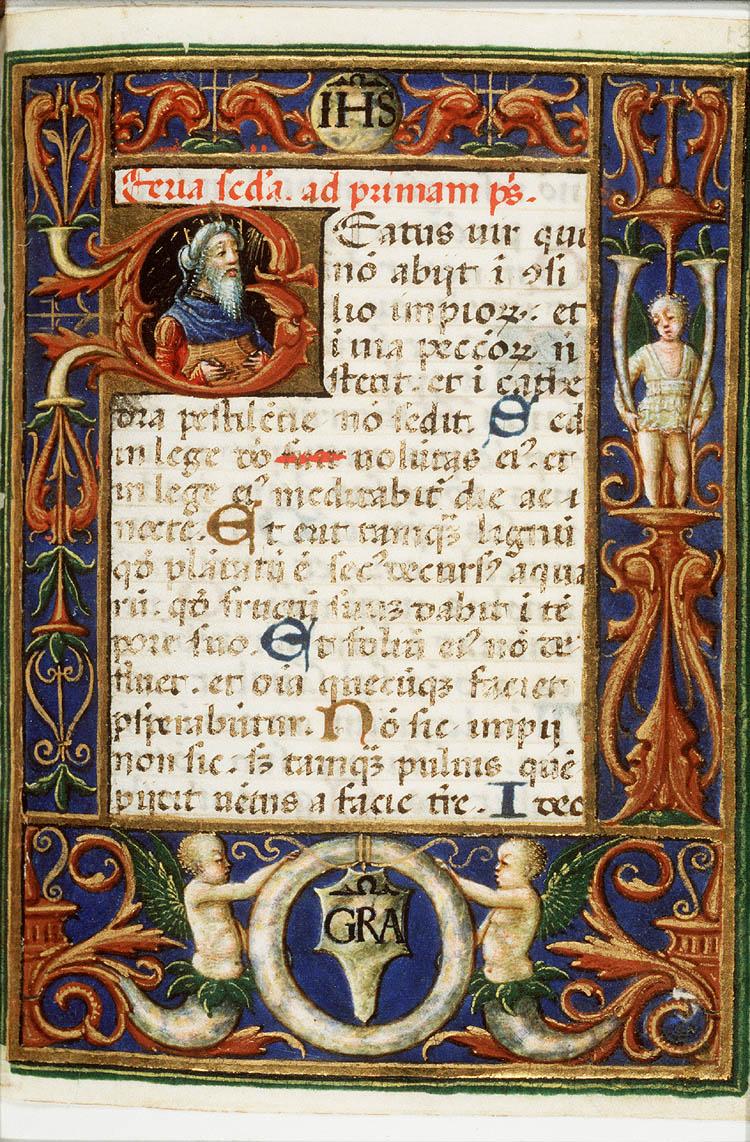 IHS
Feria sed'a. ad primam ps.
Beatus uir qui
nō abijt ī ꝯsi
lio impioꝝ. et
ī uia peccōꝝ n̄
stetit. et ī cathe
dra pestilētie nō sedit. Sed
in lege dō uolūtas eiꝰ. et
in lege eiꝰ meditabit̄ die ac
nocte. Et erit tamqꝫ lignū
qd̄ plātatū ē secꝰ decursꝰ aqua
rū. qd̄ fructū suūꝫ dabit ī tē
pore suo. Et foliū eiꝰ nō de
fluet. et oīa quecūqꝫ faciet
ꝓsperabūtur. Nō sic impij
non sic. sꝫ tamqꝫ puluis quē
pijcit uētus a facie tr̄e. Ideo
GRA